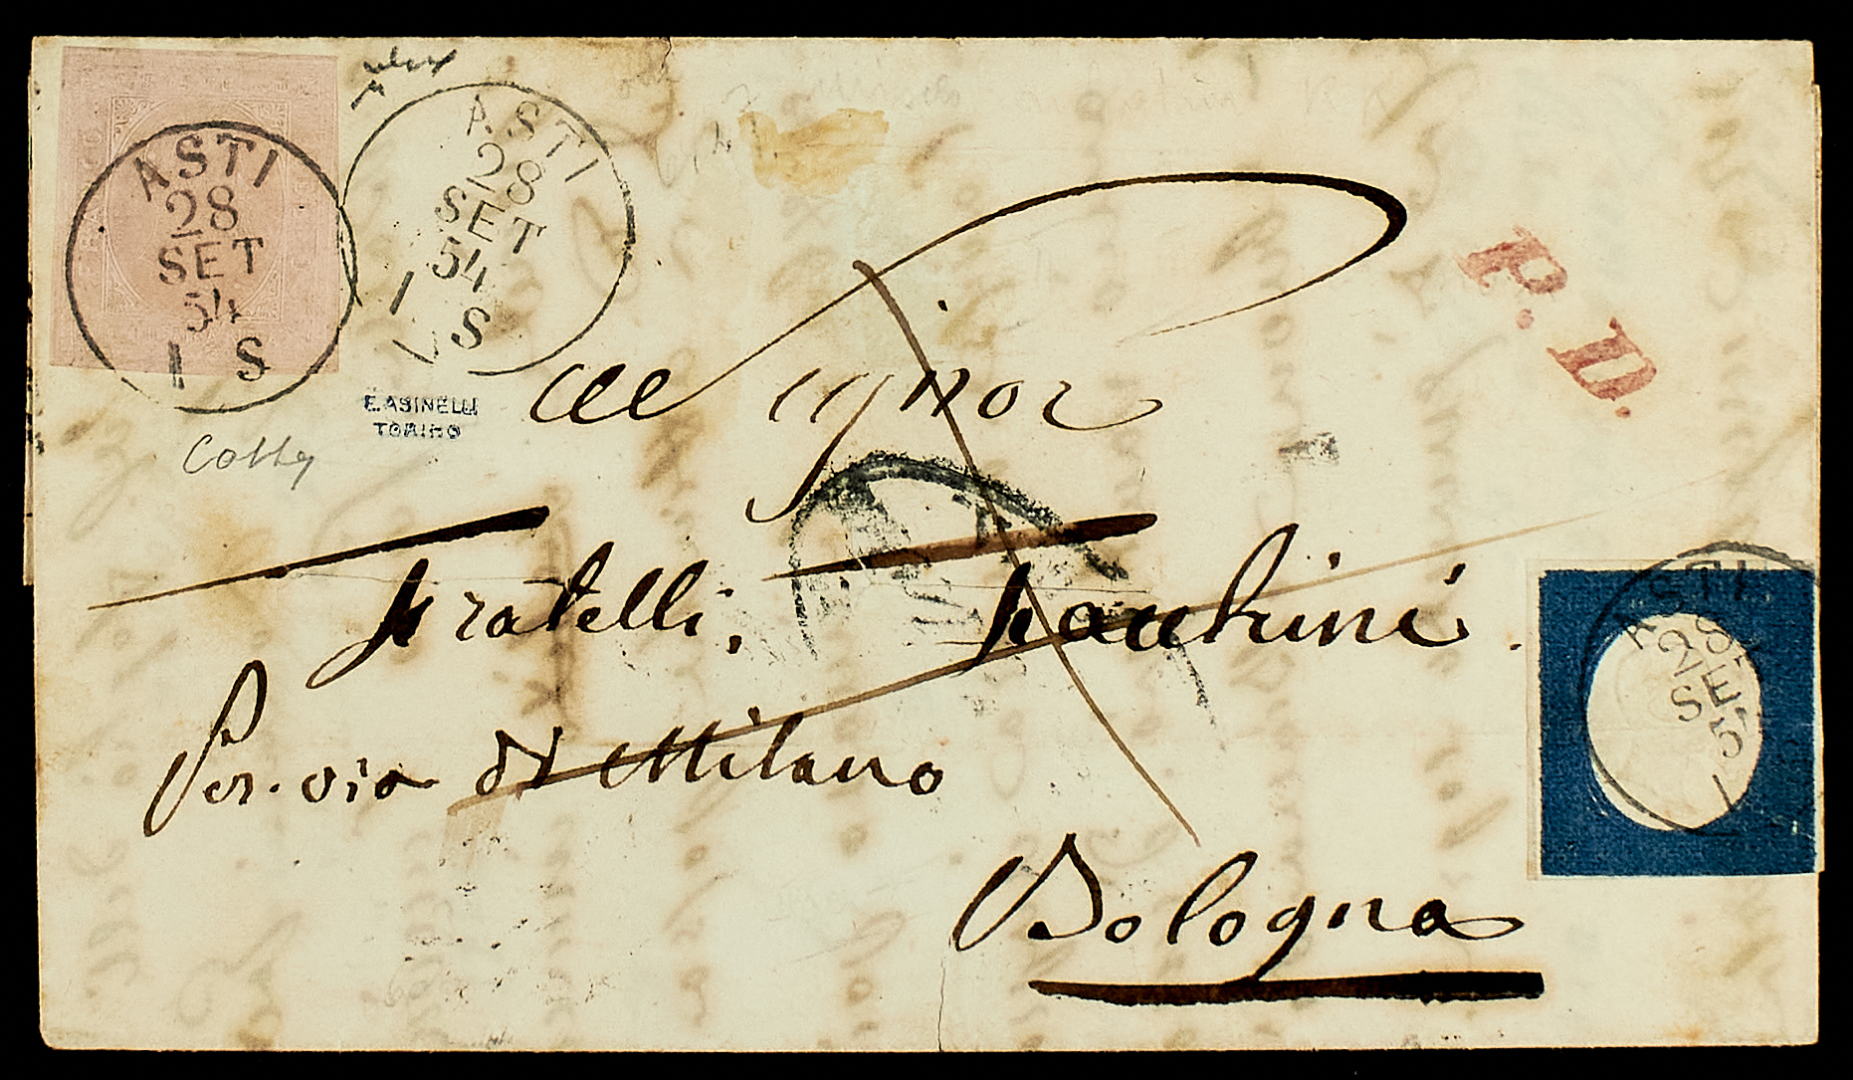 ASTI
28
SET
54
1 S
ASTI
28
SET
54
1 S
E. ASINELLI
TORINO
Colla
P.D.
al Signor
Fratelli,
Per via di Milano
Bologna
ASTI
28
SET
5
1